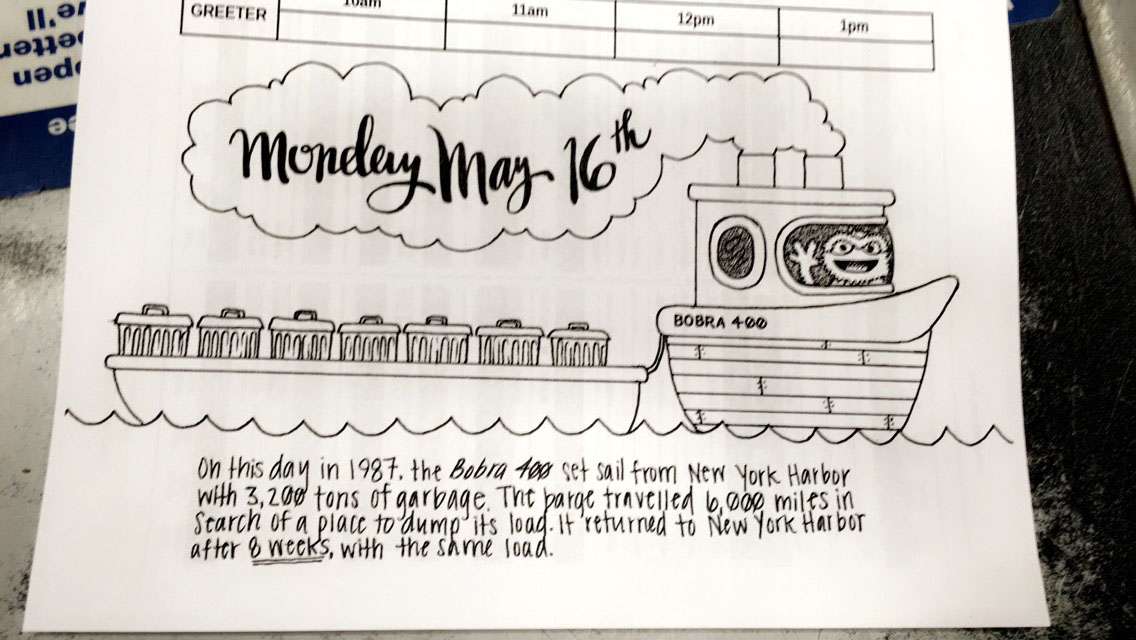 10am 11am 12pm 1pm
GREETER
Monday May 16th
BOBRA 400
On this day in 1987, the Bobra 400 set sail from New York Harbor
with 3,200 tons of garbage. The barge travelled 6,000 miles in
search of a place to dump its load. It returned to New York Harbor
after 8 weeks, with the same load.
we'll
better
open